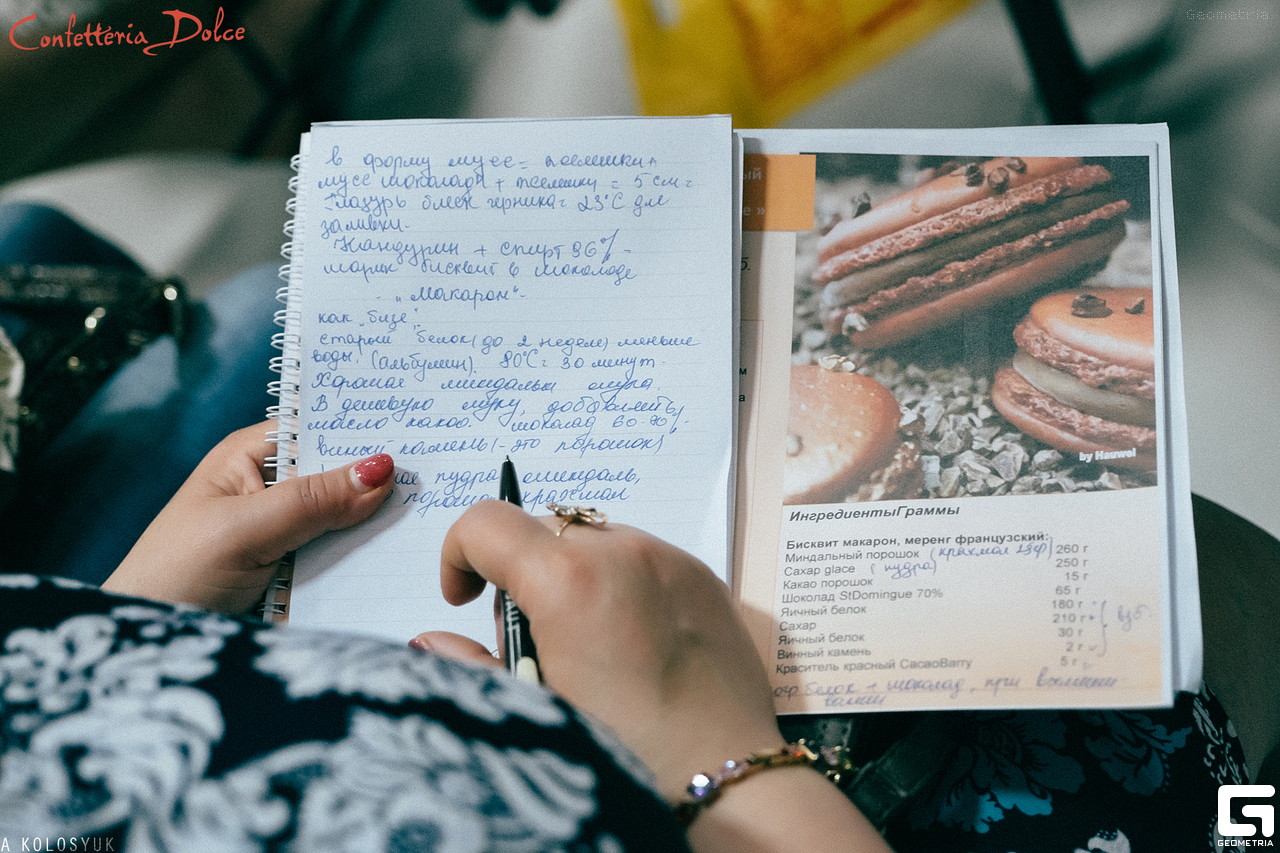 Confetteria Dolce
Geometria
в форму мусс =
мусс шоколадн + = 5 см =
Глазурь блеск черника = 23°С для
заливки.
Кандурин + спирт 96% -
бисквит в шоколаде
- „Макарон“ -
как „бизе“,
старый белок (до 2 недел) меньше
воды. (альбумин). 80°С = 30 минут.
Хорошая миндальн мука.
В дешевую муку, добавлять
масло какао. шоколад 60-70%
винный камень (- это порошок)
пудра миндаль,
крахмал
ый
е »
by Hauwel
ИнгредиентыГраммы
Бисквит макарон, меренг французский:
Миндальный порошок (крахмал 13гр) 260 г
Сахар glace (пудра) 250 г
Какао порошок 15 г
Шоколад StDomingue 70% 65 г
Яичный белок 180 г
Сахар 210 г
Яичный белок 30 г
Винный камень 2 г
Краситель красный CacaoBarry 5 г
взб.
белок + шоколад, при
A KOLOSYUK
GEOMETRIA